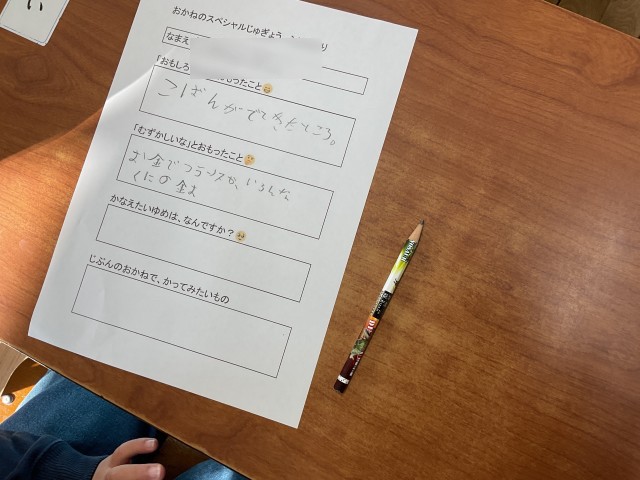 い
おかねのスペシャルじゅぎょう
なまえ
「おもしろ もったこと
こばんがでてきたところ。
「むずかしいな」とおもったこと
お金でフランスや、いろんな
くにの金
かなえたいゆめは、なんですか？
じぶんのおかねで、かってみたいもの